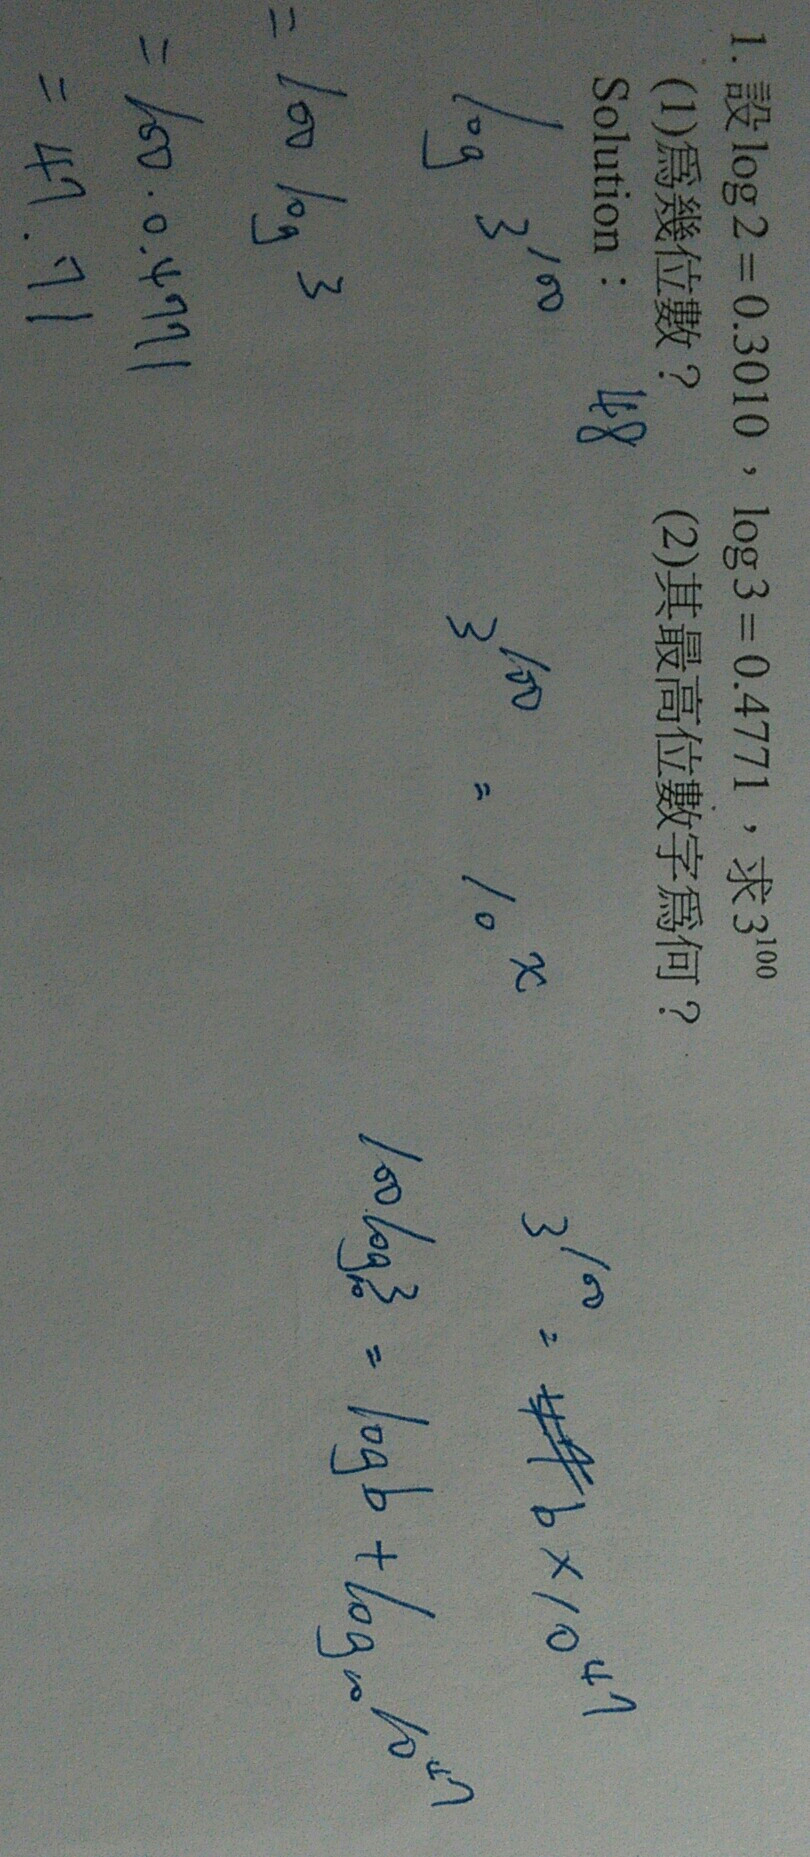 1. 設 log 2 = 0.3010，log 3 = 0.4771，求 3^100
(1)爲幾位數？ (2)其最高位數字爲何？
Solution： 48
log 3^100
= 100 log 3
= 100 · 0.4771
= 47.71
3^100 = 10^x
3^100 = b × 10^47
100 log_10 3 = log b + log_10 10^47